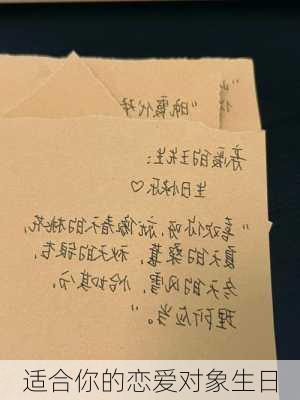 亲爱的王先生：
生日快乐♡
“喜欢你呀，就像春天的桃花，
夏天的桑葚，秋天的银杏，
冬天的风雪，恰如其分，
理所应当。”
适合你的恋爱对象生日